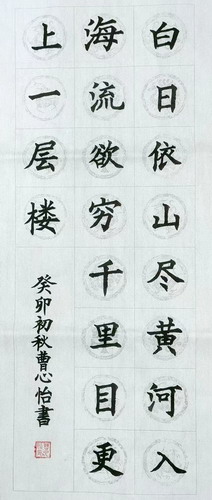 白日依山尽黄河入
海流欲穷千里目更
上一层楼
癸卯初秋曹心怡書